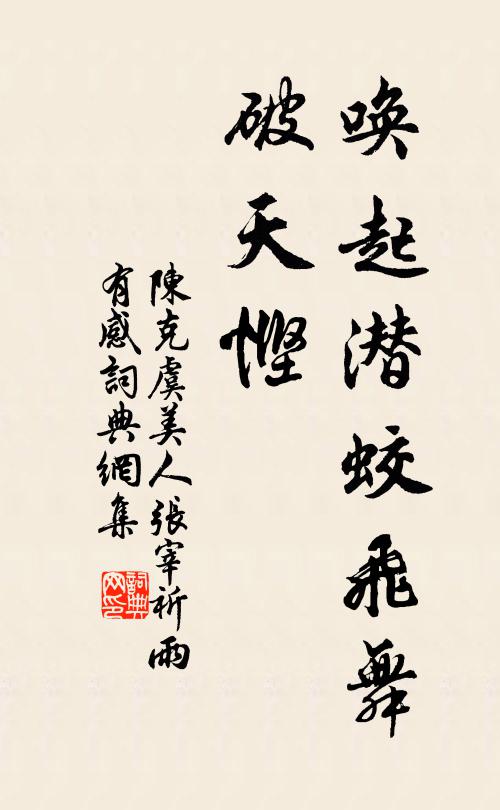 唤起潜蛟飛舞
破天慳
陳克虞美人張宰祈雨
有感詞典網集
詞典
网印